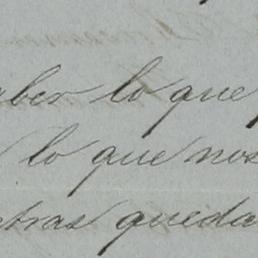 aber lo que
lo que nos
etras queda